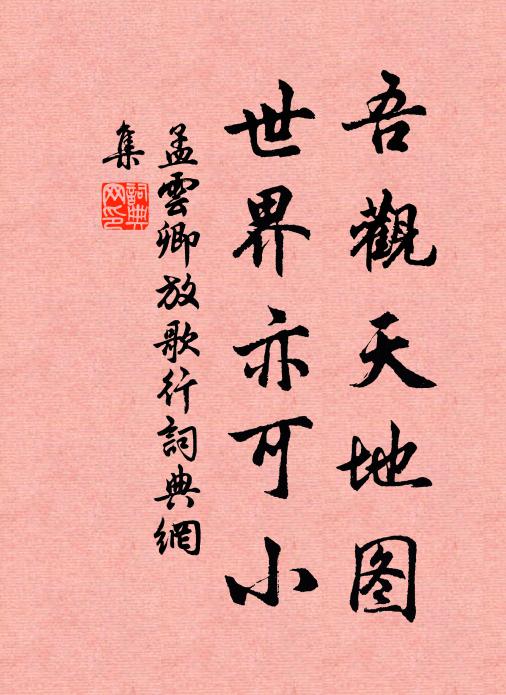 吾觀天地图
世界亦可小
孟雲卿放歌行詞典網
集
詞典网印